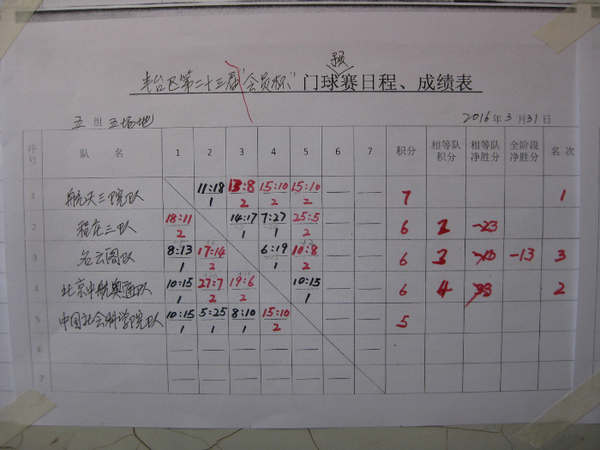 预
丰台区第二十三届"会员杯"门球赛日程、成绩表
五 组 五场地 2016年3月31日
序号 队 名 1 2 3 4 5 6 7 积分 相等队积分 相等队净胜分 全阶段净胜分 名 次
1 航天三院队 11:18 1 13:8 2 15:10 2 15:10 2 — — 7 1
2 程庄三队 18:11 2 14:17 1 7:27 1 25:5 2 — — 6 2 -23
3 名云阁队 8:13 1 17:14 2 6:19 1 10:8 2 — — 6 3 -13 3
4 北京中航奥通队 10:15 1 27:7 2 19:6 2 10:15 1 — — 6 4 2
5 中国社会科学院队 10:15 1 5:25 1 8:10 1 15:10 2 — — 5
6 — — — — — —
7 — — — — — —